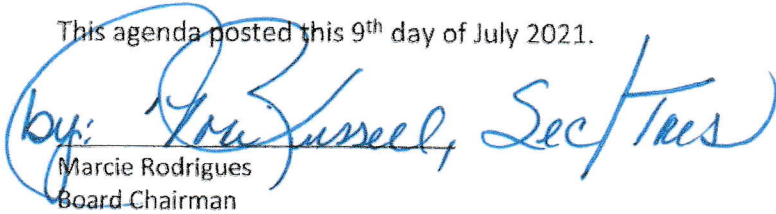 This agenda posted this 9th day of July 2021.
by: Russell, Sec/Tres
Marcie Rodrigues
Board Chairman